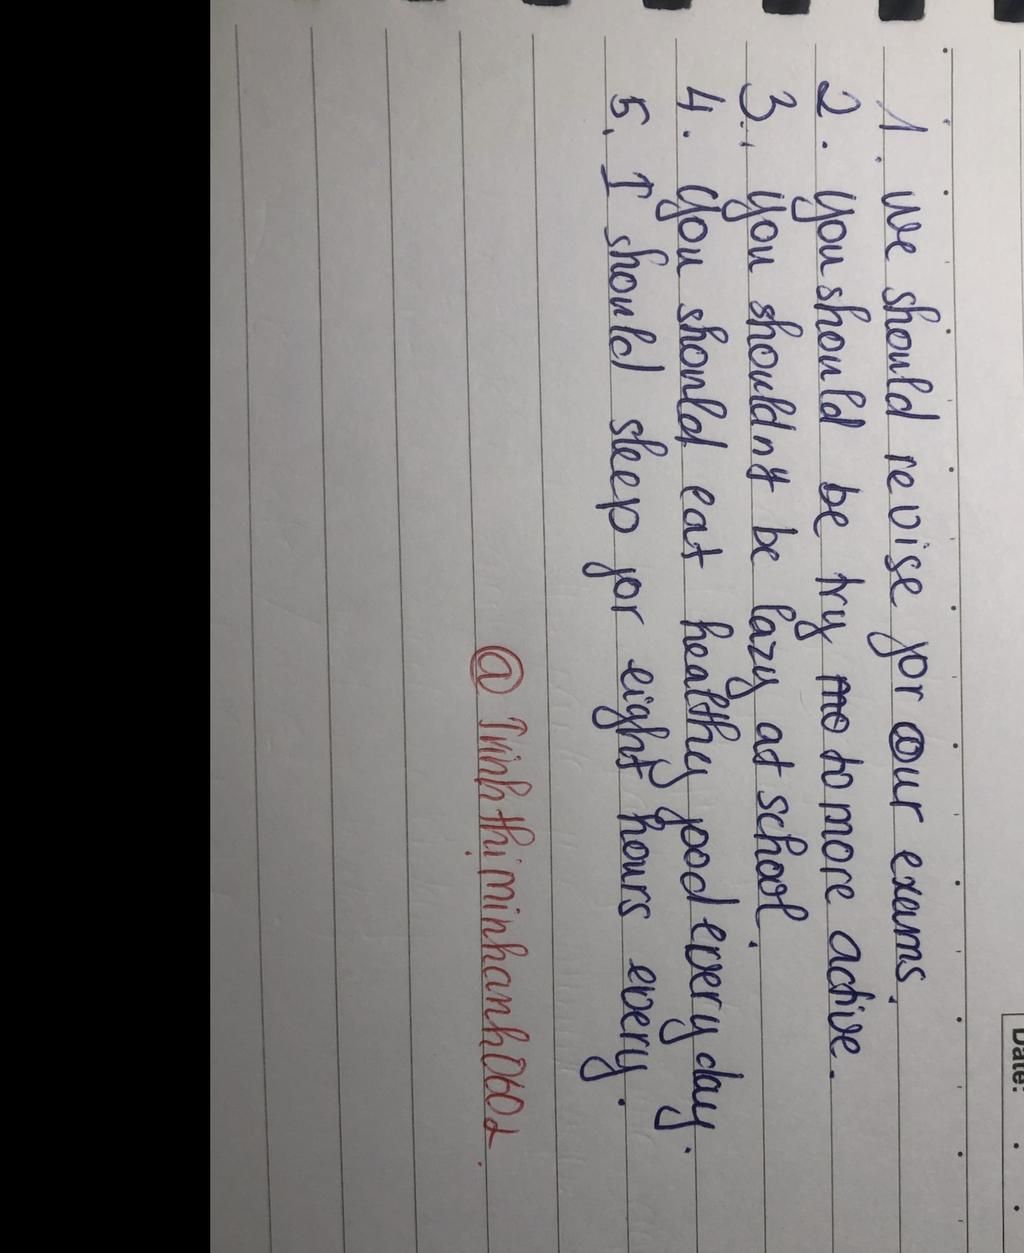 Date:
1. We should revise for our exams.
2. You should be try to more active.
3. You shouldn't be lazy at school.
4. You should eat healthy food every day.
5. I should sleep for eight hours every.
@Trinhthiminhanh0602.